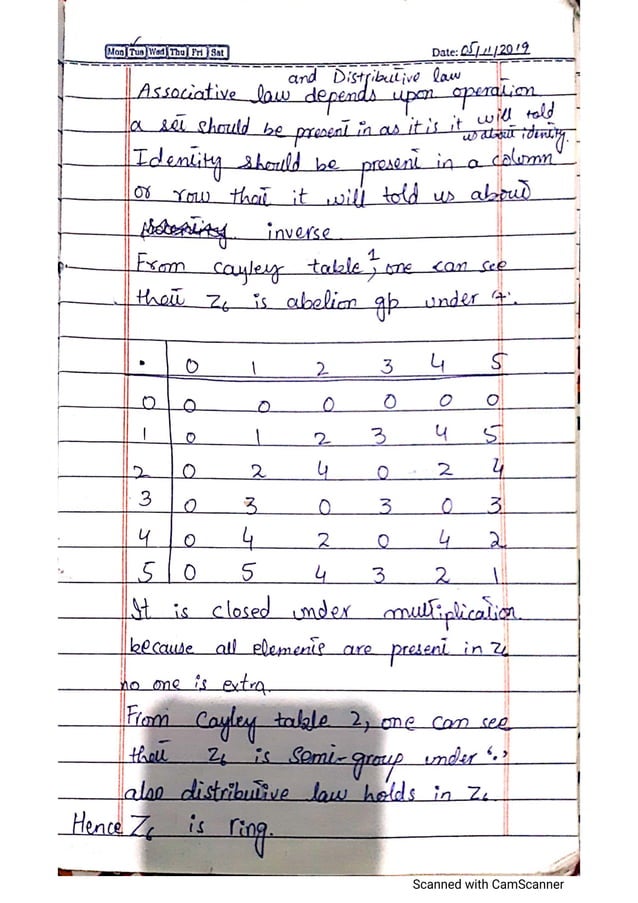 Mon Tue Wed Thu Fri Sat Date: 05/11/2019
and Distributive law
Associative law depends upon operation
a set should be present in as it is it will told
us about identity.
Identity should be present in a column
or row that it will told us about
inverse
From cayley table 1, one can see
that Z6 is abelion gp under '+'.
. 0 1 2 3 4 5
0 0 0 0 0 0 0
1 0 1 2 3 4 5
2 0 2 4 0 2 4
3 0 3 0 3 0 3
4 0 4 2 0 4 2
5 0 5 4 3 2 1
It is closed under multiplication
because all elements are present in Z6
no one is extra.
From Cayley table 2, one can see
that Z6 is semi-group under '.'
also distributive law holds in Z6.
Hence Z6 is ring.
Scanned with CamScanner